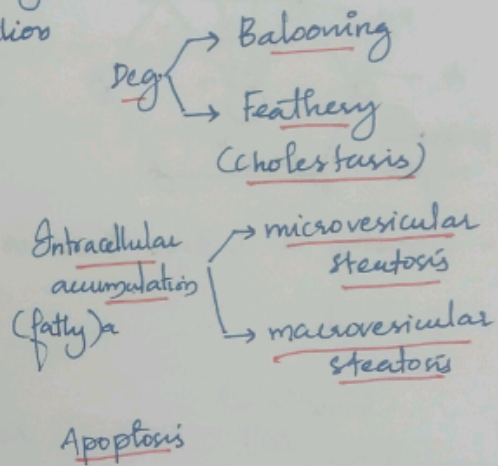 Balooning
Deg.
Feathery
(Cholestasis)
Intracellular
accumulation
(fatty)a
microvesicular
steatosis
macrovesicular
steatosis
Apoptosis